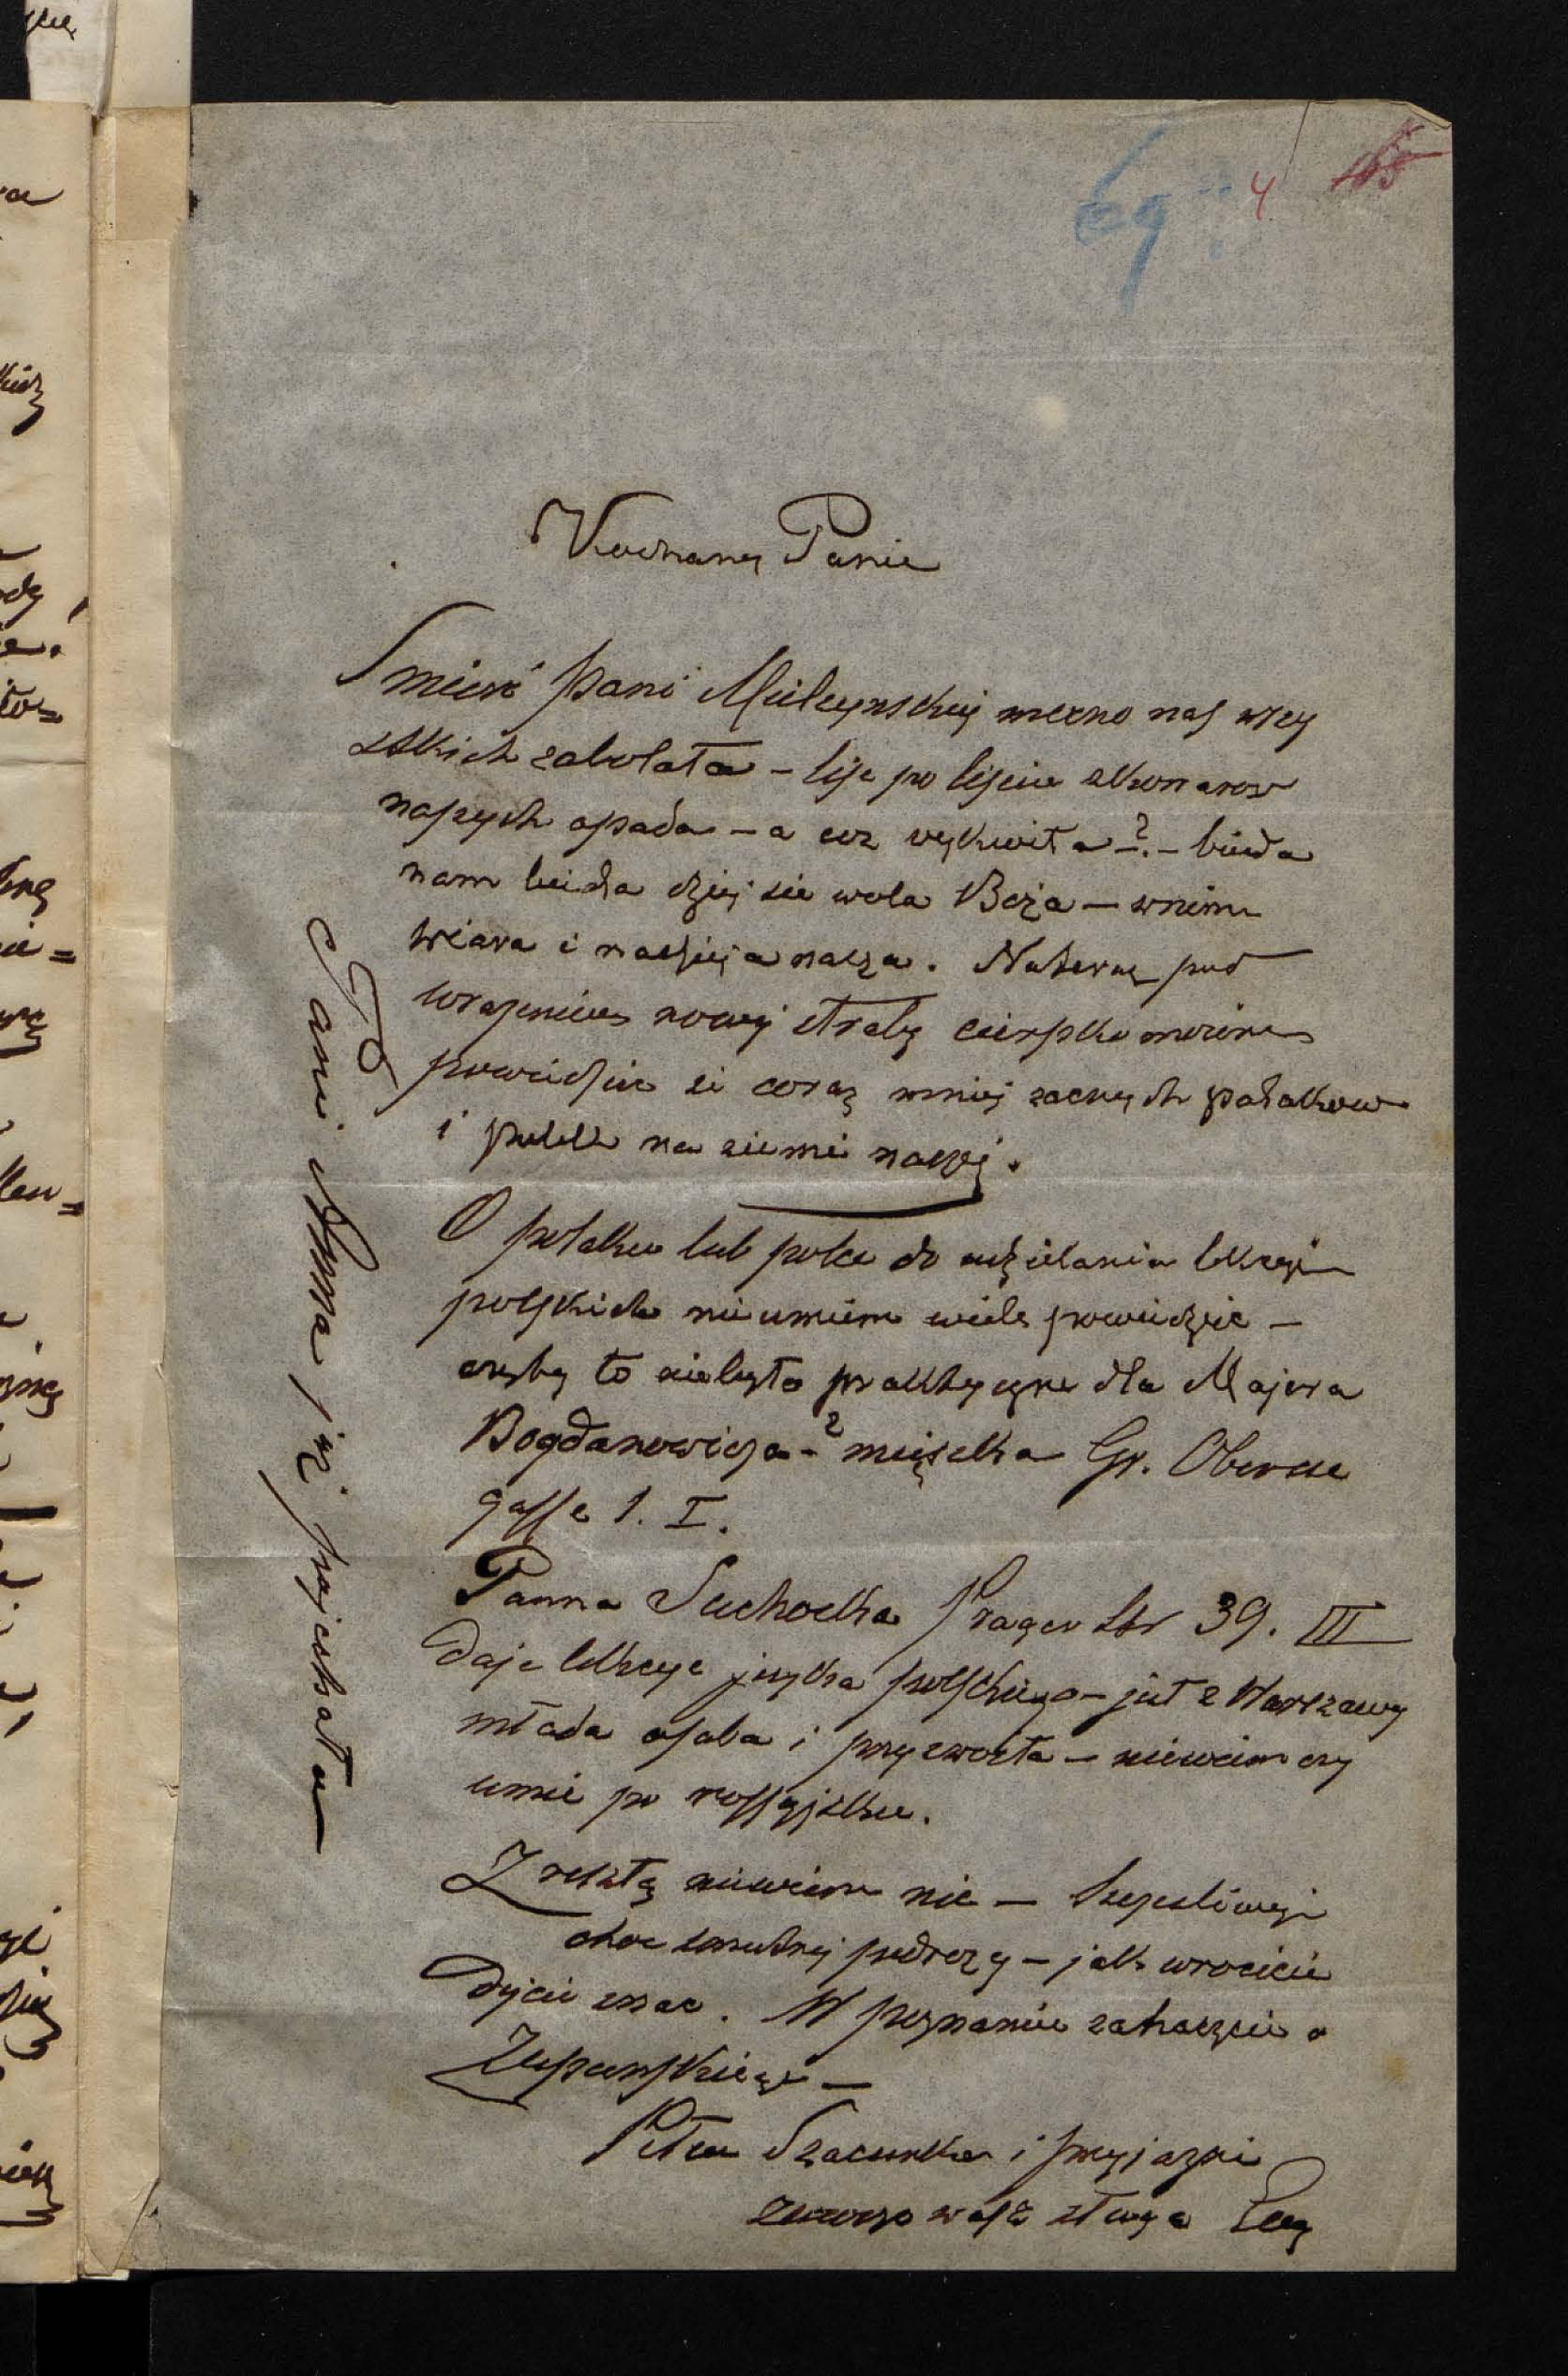 4
Kochany Panie
Smierć pani Mielzynskiej mocno nas wszy
stkich zabolała – liść po liściu z konarow
naszych opada – a coz wykwita –?– bieda
nam bieda dziej sie wola Boża – w nim
wiara i nadzieja nasza. Natenczas pod
wrazeniem nowej straty cierpko mowimy
powiedziec ze coraz mniej zacnych polakow
i polek na ziemi naszej.
O polaku lub polce do udzielania lekcyi
polskich nie umiem wiele powiedziec –
czyby to nie było praktyczne dla Majora
Bogdanowicza –? mięszka Gr. Obersee
gasse 1. I.
Panna Suchocka Prager Str 39. III
daje lekcye języka polskiego – jest z Warszawy
młoda osoba i przyzwoita – niewiem czy
umie po rossyjsku.
Z resztą niewiem nic – Szczesliwej
choc smutnej podrozy – jak wrocicie
dajcie znac. W Poznaniu zahaczcie o
Zupanskiego –
Pełen Szacunku i przyjazni
zawsze wasz sługa
Pani Anna już pojechała